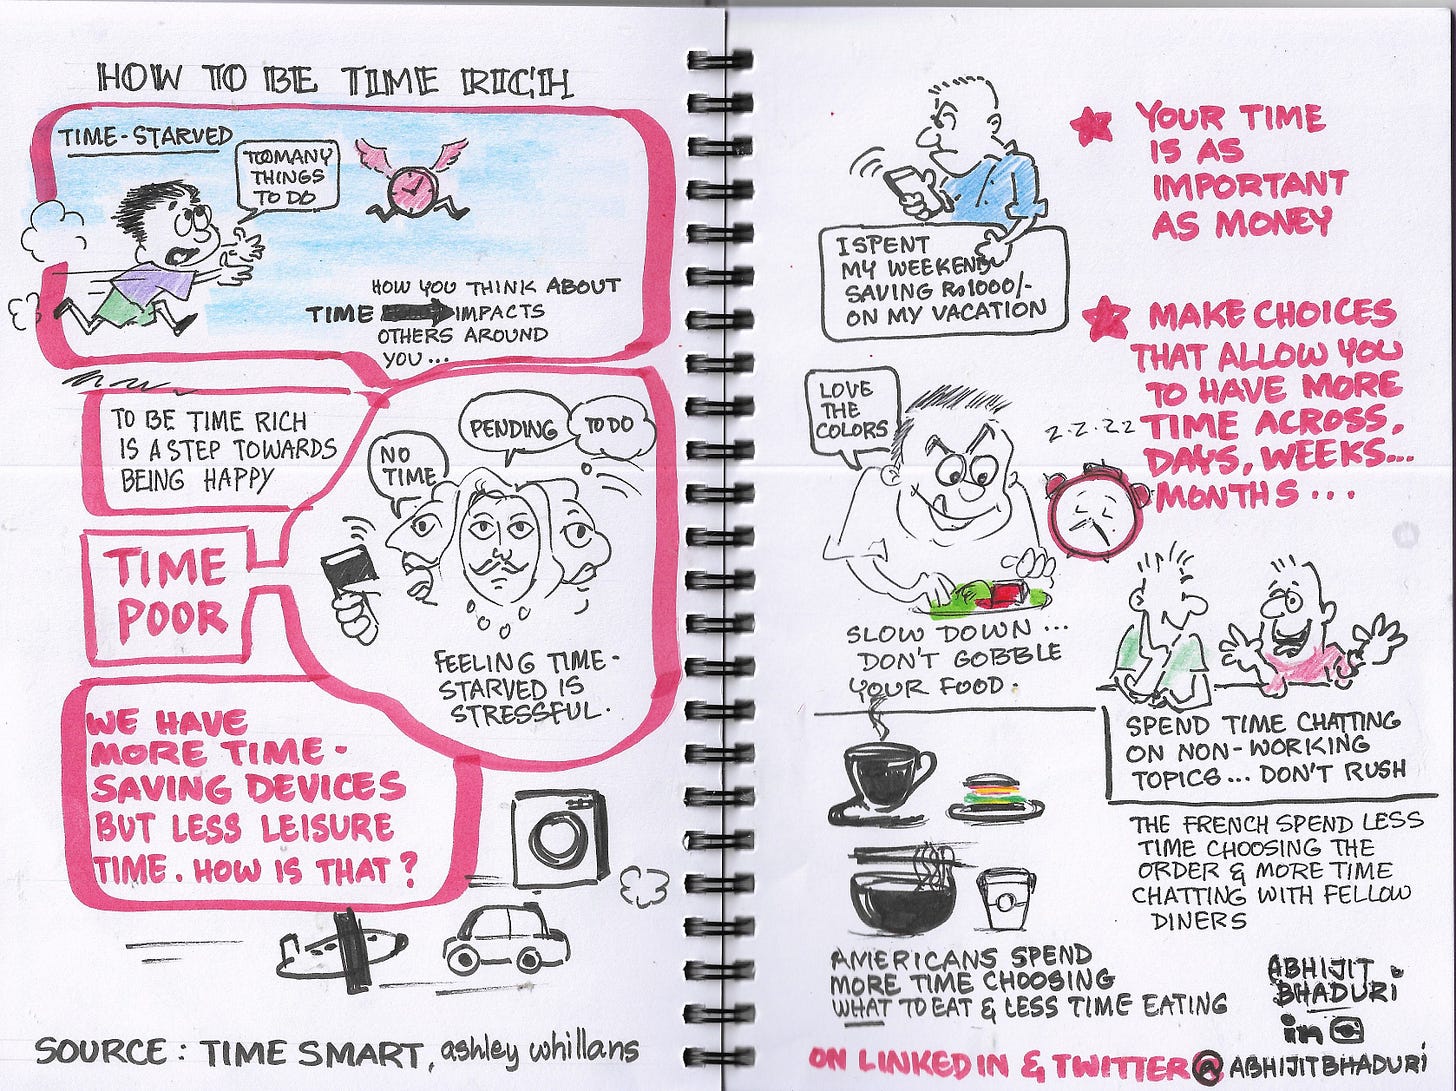 HOW TO BE TIME RICH
TIME-STARVED
TOO MANY
THINGS
TO DO
HOW YOU THINK ABOUT
TIME IMPACTS
OTHERS AROUND
YOU...
TO BE TIME RICH
IS A STEP TOWARDS
BEING HAPPY
NO
TIME
PENDING
TO DO
TIME
POOR
FEELING TIME-
STARVED IS
STRESSFUL.
WE HAVE
MORE TIME-
SAVING DEVICES
BUT LESS LEISURE
TIME. HOW IS THAT?
SOURCE: TIME SMART, ashley whillans
I SPENT
MY WEEKEND
SAVING Rs1000/-
ON MY VACATION
YOUR TIME
IS AS
IMPORTANT
AS MONEY
MAKE CHOICES
THAT ALLOW YOU
TO HAVE MORE
TIME ACROSS,
DAYS, WEEKS...
MONTHS...
LOVE
THE
COLORS
Z-Z-ZZ
SLOW DOWN...
DON'T GOBBLE
YOUR FOOD.
SPEND TIME CHATTING
ON NON-WORKING
TOPICS... DON'T RUSH
THE FRENCH SPEND LESS
TIME CHOOSING THE
ORDER & MORE TIME
CHATTING WITH FELLOW
DINERS
AMERICANS SPEND
MORE TIME CHOOSING
WHAT TO EAT & LESS TIME EATING
ABHIJIT
BHADURI
in
ON LINKEDIN & TWITTER @ABHIJITBHADURI